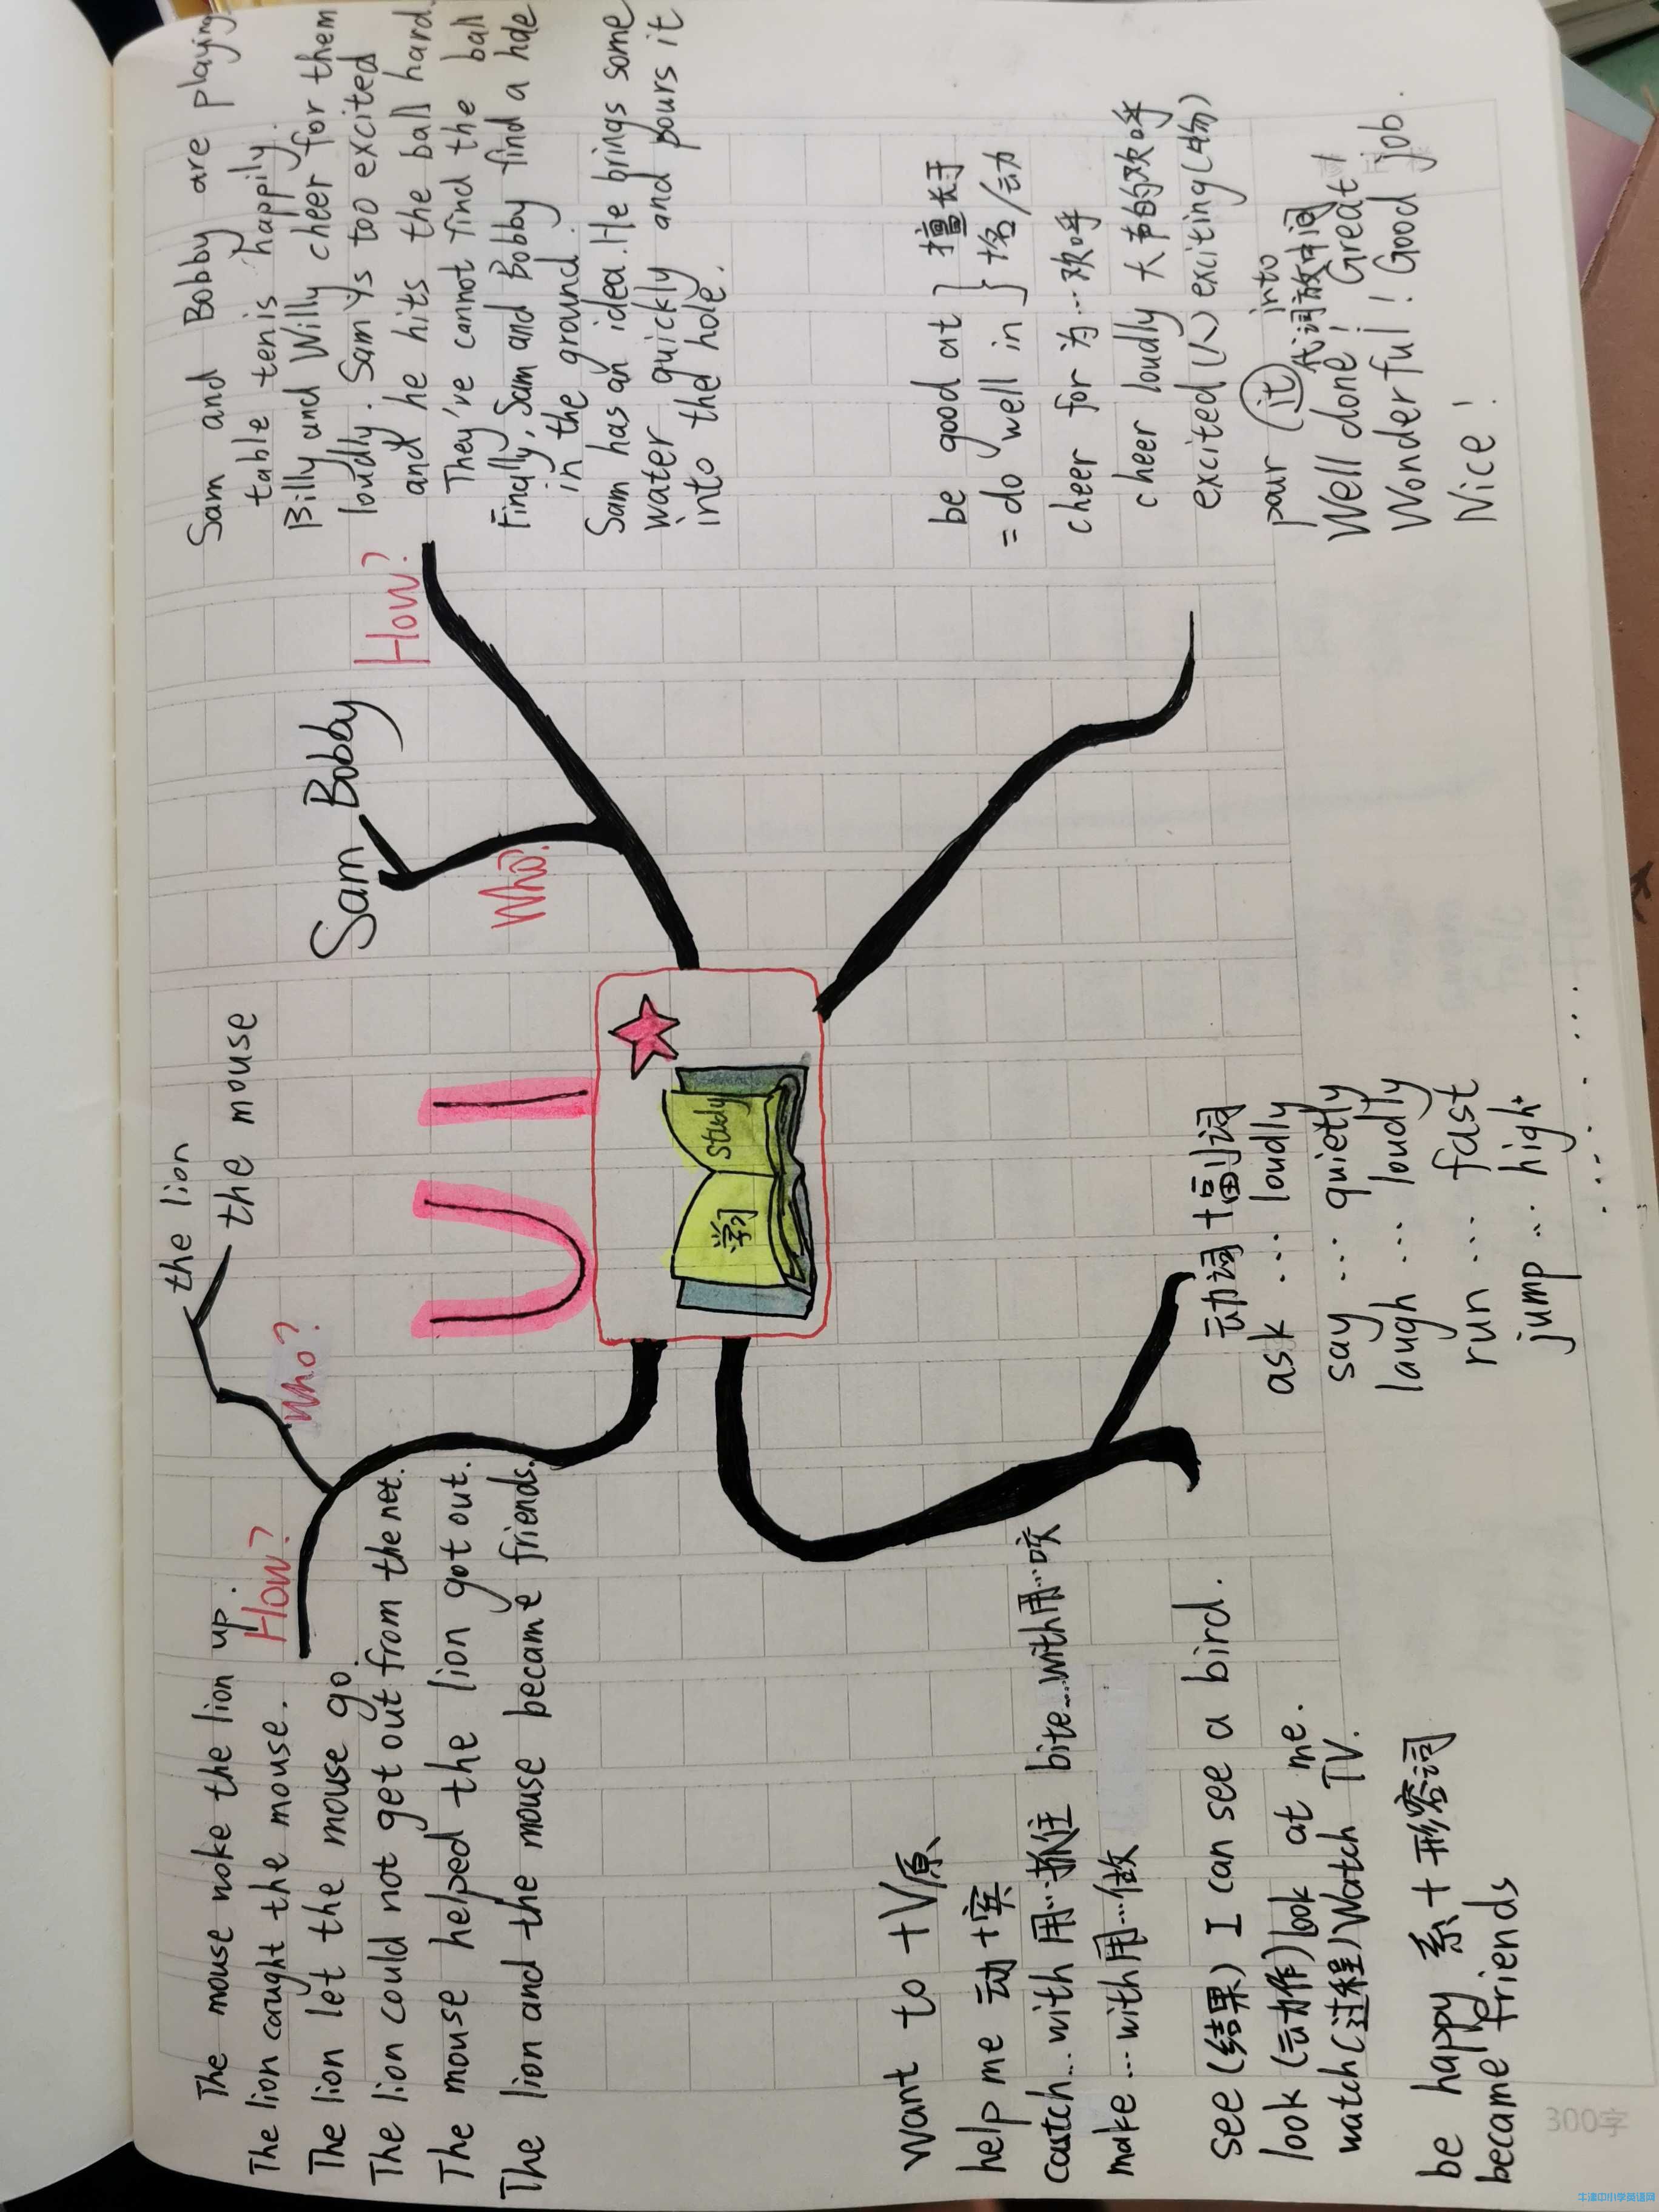 U1
学习
study
Who?
the lion
the mouse
How?
The mouse woke the lion up.
The lion caught the mouse.
The lion let the mouse go.
The lion could not get out from the net.
The mouse helped the lion got out.
The lion and the mouse became friends.
Who?
Sam
Bobby
How?
Sam and Bobby are playing
table tenis happily.
Billy and Willy cheer for them
loudly. Sam is too excited
and he hits the ball hard.
They've cannot find the ball
Finally, Sam and Bobby find a hole
in the ground.
Sam has an idea. He brings some
water quickly and pours it
into the hole.
want to +V原
help me 动+宾
catch...with 用…抓住 bite...with用…咬
make...with用…做
see(结果) I can see a bird.
look(动作)look at me.
watch(过程)Watch TV.
be happy 系+形容词
became friends
动词+副词
ask ... loudly
say ... quietly
laugh ... loudly
run ... fast
jump ... high
......
be good at } 擅长于
= do well in } +名/动
cheer for 为…欢呼
cheer loudly 大声的欢呼
excited(人) exciting(物)
pour (it) into
代词放中间
Well done! Great!
Wonderful! Good job.
Nice!
300字
牛津中小学英语网